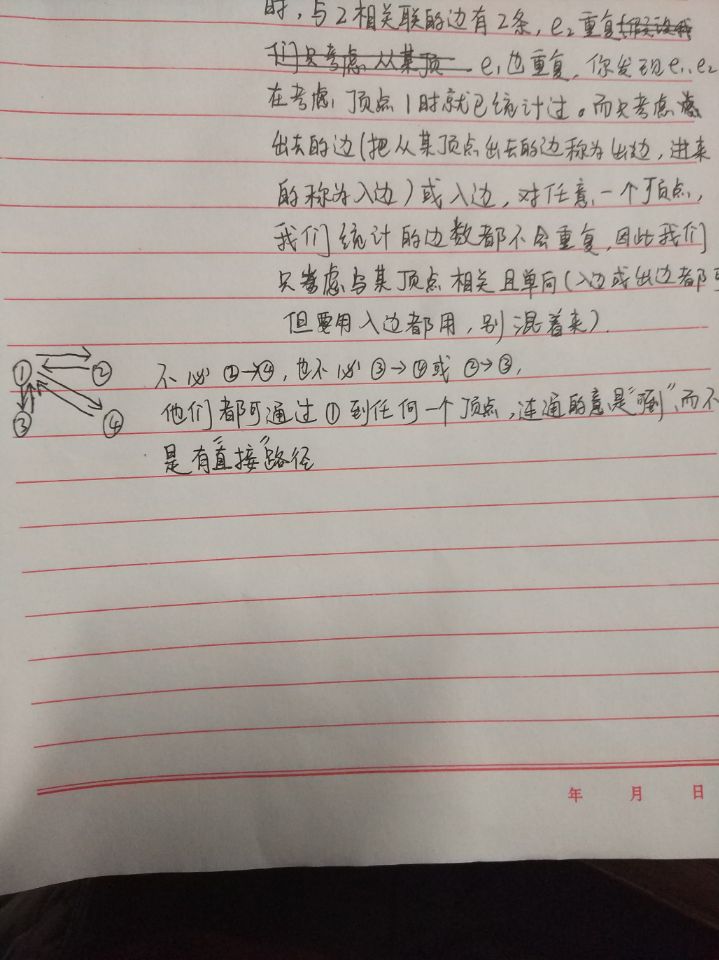 时，与2相关联的边有2条，e₂重复(假设我
们只考虑从某顶 e₁也重复，你发现e₁、e₂
在考虑顶点1时就已统计过。而只考虑
出去的边(把从某顶点出去的边称为出边，进来
的称为入边)或入边，对任意一个顶点，
我们统计的边数都不会重复，因此我们
只考虑与某顶点相关且单向(入边或出边都可
但要用入边都用，别混着来)。
① ②
③ ④
不必②→④，也不必③→④或②→③，
他们都可通过①到任何一个顶点，连通的意是"到"，而不
是有"直接"路径
年 月 日